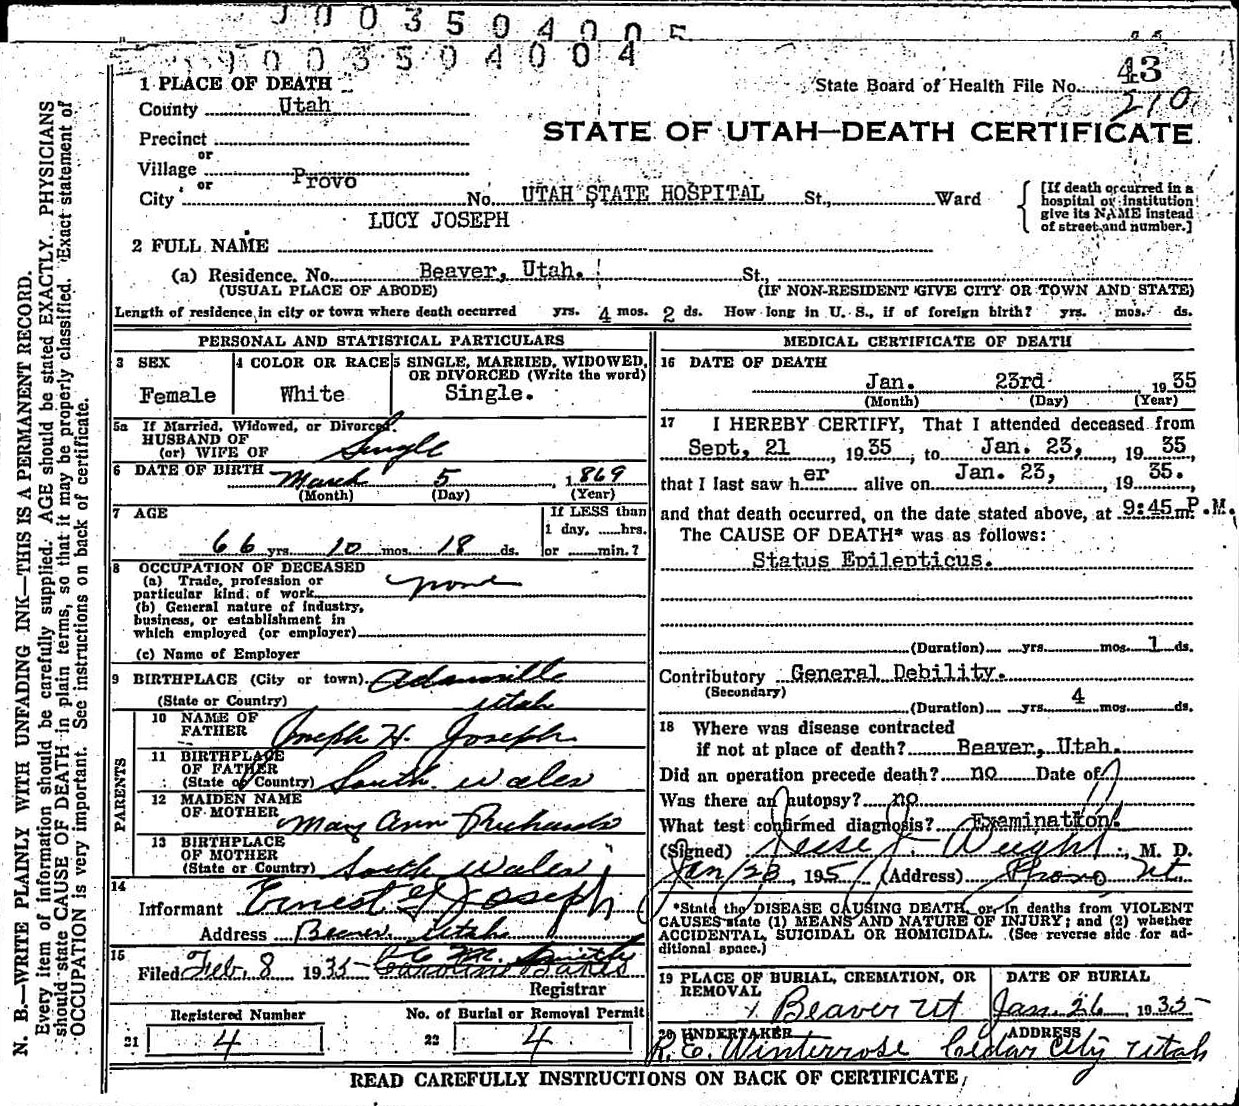 003504005
9003504004
1 PLACE OF DEATH
State Board of Health File No. 43
210
County Utah
STATE OF UTAH—DEATH CERTIFICATE
Precinct
or
Village
or
City Provo No. UTAH STATE HOSPITAL St., Ward
[If death occurred in a hospital or institution give its NAME instead of street and number.]
LUCY JOSEPH
2 FULL NAME
(a) Residence. No. Beaver, Utah. St.
(USUAL PLACE OF ABODE) (IF NON-RESIDENT GIVE CITY OR TOWN AND STATE)
Length of residence in city or town where death occurred yrs. 4 mos. 2 ds. How long in U. S., if of foreign birth? yrs. mos. ds.
PERSONAL AND STATISTICAL PARTICULARS
3 SEX
Female
4 COLOR OR RACE
White
5 SINGLE, MARRIED, WIDOWED, OR DIVORCED (Write the word)
Single.
5a If Married, Widowed, or Divorced.
HUSBAND OF
(or) WIFE OF Single
6 DATE OF BIRTH March 5, 1869
(Month) (Day) (Year)
7 AGE
66 yrs. 10 mos. 18 ds.
If LESS than
1 day, hrs.
or min.?
8 OCCUPATION OF DECEASED
(a) Trade, profession or
particular kind of work none
(b) General nature of industry,
business, or establishment in
which employed (or employer)
(c) Name of Employer
9 BIRTHPLACE (City or town) Adamsville
(State or Country) Utah
PARENTS
10 NAME OF
FATHER Joseph H. Joseph
11 BIRTHPLACE
OF FATHER
(State or Country) South Wales
12 MAIDEN NAME
OF MOTHER Mary Ann Richards
13 BIRTHPLACE
OF MOTHER
(State or Country) South Wales
14
Informant Ernest G Joseph
Address Beaver Utah
15
Filed Feb. 8 1935
Registrar
Registered Number
21 4
No. of Burial or Removal Permit
22 4
MEDICAL CERTIFICATE OF DEATH
16 DATE OF DEATH
Jan. 23rd 1935
(Month) (Day) (Year)
17 I HEREBY CERTIFY, That I attended deceased from
Sept, 21, 1935, to Jan. 23, 1935,
that I last saw her alive on Jan. 23, 1935.
and that death occurred, on the date stated above, at 9:45 m P.M.
The CAUSE OF DEATH* was as follows:
Status Epilepticus.
(Duration) yrs. mos. 1 ds.
Contributory General Debility.
(Secondary)
(Duration) yrs. 4 mos. ds.
18 Where was disease contracted
if not at place of death? Beaver, Utah.
Did an operation precede death? no Date of
Was there an autopsy? no
What test confirmed diagnosis? Examination.
(Signed) Jesse J. Weight, M. D.
Jan/23, 195 (Address) Provo Ut.
*State the DISEASE CAUSING DEATH, or in deaths from VIOLENT
CAUSES state (1) MEANS AND NATURE OF INJURY; and (2) whether
ACCIDENTAL, SUICIDAL OR HOMICIDAL. (See reverse side for ad-
ditional space.)
19 PLACE OF BURIAL, CREMATION, OR
REMOVAL
Beaver Ut
DATE OF BURIAL
Jan. 26, 1935
20 UNDERTAKER
R. E. Winterrose
ADDRESS
Cedar City Utah
READ CAREFULLY INSTRUCTIONS ON BACK OF CERTIFICATE
N. B.—WRITE PLAINLY WITH UNFADING INK—THIS IS A PERMANENT RECORD.
Every item of information should be carefully supplied. AGE should be stated EXACTLY. PHYSICIANS
should state CAUSE OF DEATH in plain terms, so that it may be properly classified. Exact statement of
OCCUPATION is very important. See instructions on back of certificate.